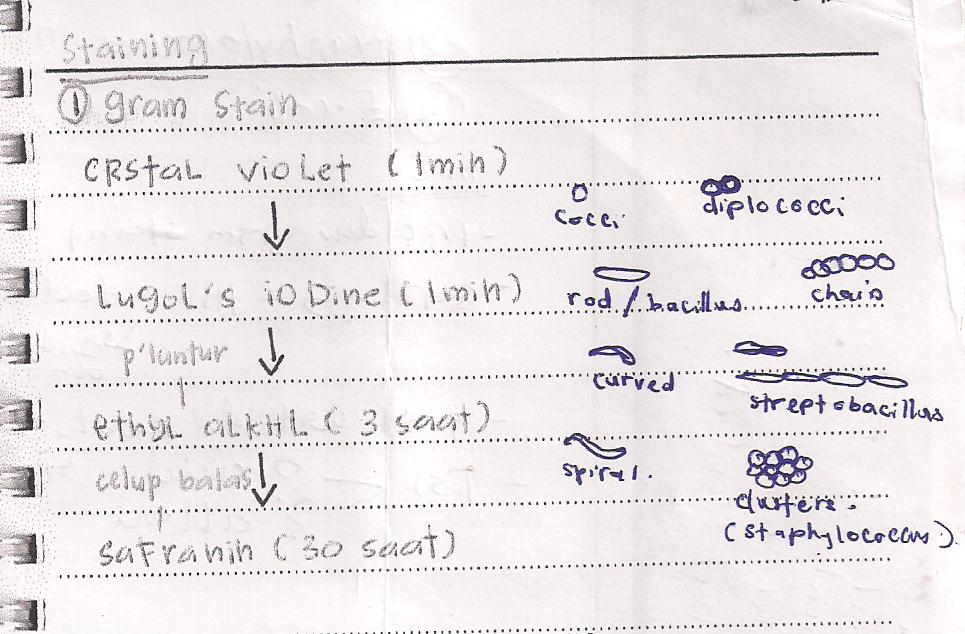 Staining
① gram Stain
CRStaL vioLet (1min)
cocci
diplococci
LugoL's ioDine (1min)
rod / bacillus
chais
p'luntur
curved
ethyL aLKHL (3 saat)
streptobacillus
celup balas
spiral.
clusters.
(staphylococcus)
SaFranin (30 saat)